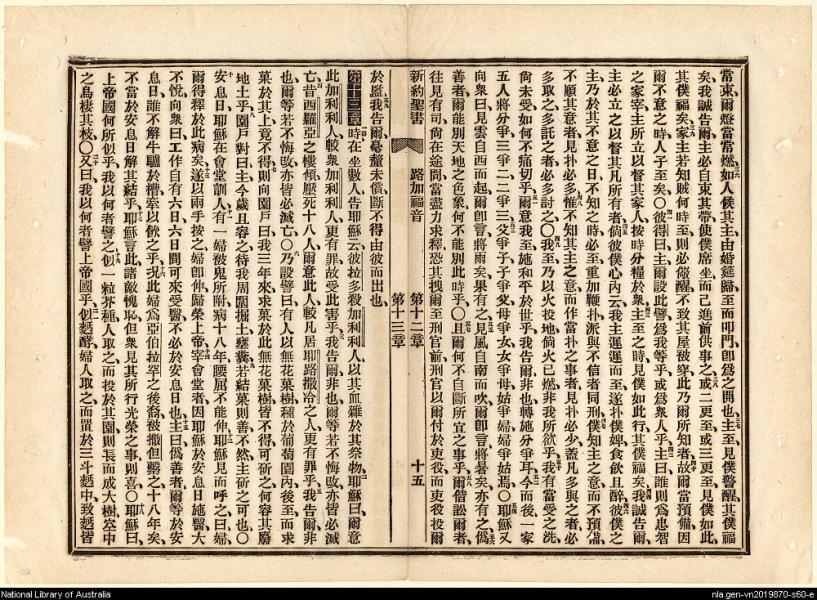 常束爾燈當常燃如人俟其主由婚筵歸至而叩門卽爲之開也主至見僕醒其僕福
矣我誠告爾主必自束其帶使僕席坐而己進前供事之或二更至或三更至見僕如此
其僕福矣家主若知賊何時至則必儆醒不致其屋被穿此乃爾所知者故爾當預備因
爾不意之時人子至矣○彼得曰主爾設此譬爲我等乎或爲衆人乎主曰誰則爲忠智
之家宰主所立以督其家人按時分糧於衆主至之時見僕如此行其僕福矣我誠告爾
主必立之以督其凡所有者倘彼僕心內云我主遲遲而至遂扑僕婢食飲且醉彼僕之
主乃於其不意之日不知之時必至重加鞭扑派與不信者同刑僕知主之意而不預備
不順其意者見扑必多惟不知其主之意而作當扑之事者見扑必少蓋凡多與之者必
多取之多託之者必多討之○我至乃以火投地倘火已燃非我所欲乎我有當受之洗
尙未受如何不痛切乎爾意我至施和平於世乎我告爾非也轉施分爭耳今而後一家
五人將分爭三爭二二爭三父爭子子爭父母爭女女爭母姑爭婦婦爭姑焉○耶穌又
向衆曰見雲自西而起爾卽言將雨矣果有之見風自南而吹爾卽言將暑矣亦有之僞
善者爾能別天地之色象何不能別此時乎○且爾何不自斷所宜之事乎爾偕訟爾者
往見有司尙在途間當盡力求釋恐其拽爾至刑官前刑官以爾付於吏役而吏役投爾
新約聖書 路加福音 第十二章 第十三章 十五
於監我告爾毫釐未償斷不得由彼而出也
第十三章 時在坐數人告耶穌云彼拉多殺加利利人以其血雜於其祭物耶穌曰爾意
此加利利人較衆加利利人更有罪故受此害乎我告爾非也爾等若不悔改亦皆必滅
亡昔西羅亞之樓傾壓死十八人爾意此人較凡居耶路撒冷之人更有罪乎我告爾非
也爾等若不悔改亦皆必滅亡○乃設譬曰有人以無花菓樹種於葡萄園內後至而求
菓於其上竟不得則向園戶曰我三年來求菓於此無花菓樹皆不得可斫之何容其廢
地土乎園戶對曰主今歲且容之待我周圍掘土壅糞若結菓則善不然主斫之可也○
安息日耶穌在會堂訓人有一婦被鬼所附病十八年腰屈不能伸耶穌見而呼之曰婦
爾得釋於此病矣遂以兩手按之婦卽伸歸榮上帝宰會堂者因耶穌於安息日施醫大
不悅向衆曰工作自有六日六日間可來受醫不必於安息日也主曰僞善者爾等於安
息日誰不解牛驢於槽牽以飲之乎況此婦爲亞伯拉罕之後裔被撒但繫之十八年矣
不當於安息日解其結乎耶穌言此諸敵愧恥但衆見其所行光榮之事則喜○耶穌曰
上帝國何所似乎我以何者譬之似一粒芥種人取之而投於其園則長而成大樹空中
之鳥棲其枝○又曰我以何者譬上帝國乎似麪酵婦人取之而置於三斗麪中致麪皆
National Library of Australia
nla.gen-vn2019870-s60-e